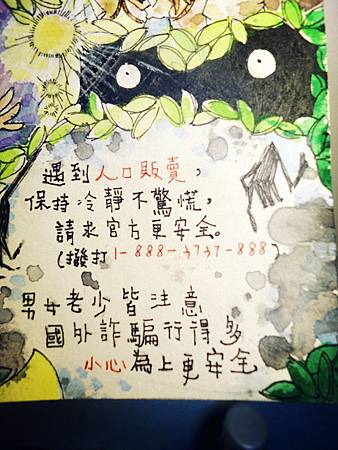 遇到人口販賣，
保持冷靜不驚慌，
請求官方更安全。
(撥打1-888-3737-888)
男女老少皆注意
國外詐騙行得多
小心為上更安全